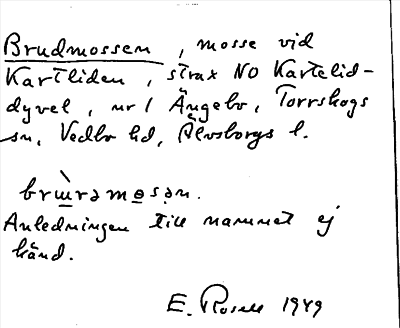 Brudmossen, mosse vid
Kartliden, strax NO Kartelid-
dyvel, nr 1 Ängebo, Torrskogs
sn, Vedbo hd, Älvsborgs l.
brɯ̀rəmosən.
Anledningen till namnet ej
känd.
E. Rosell 1949